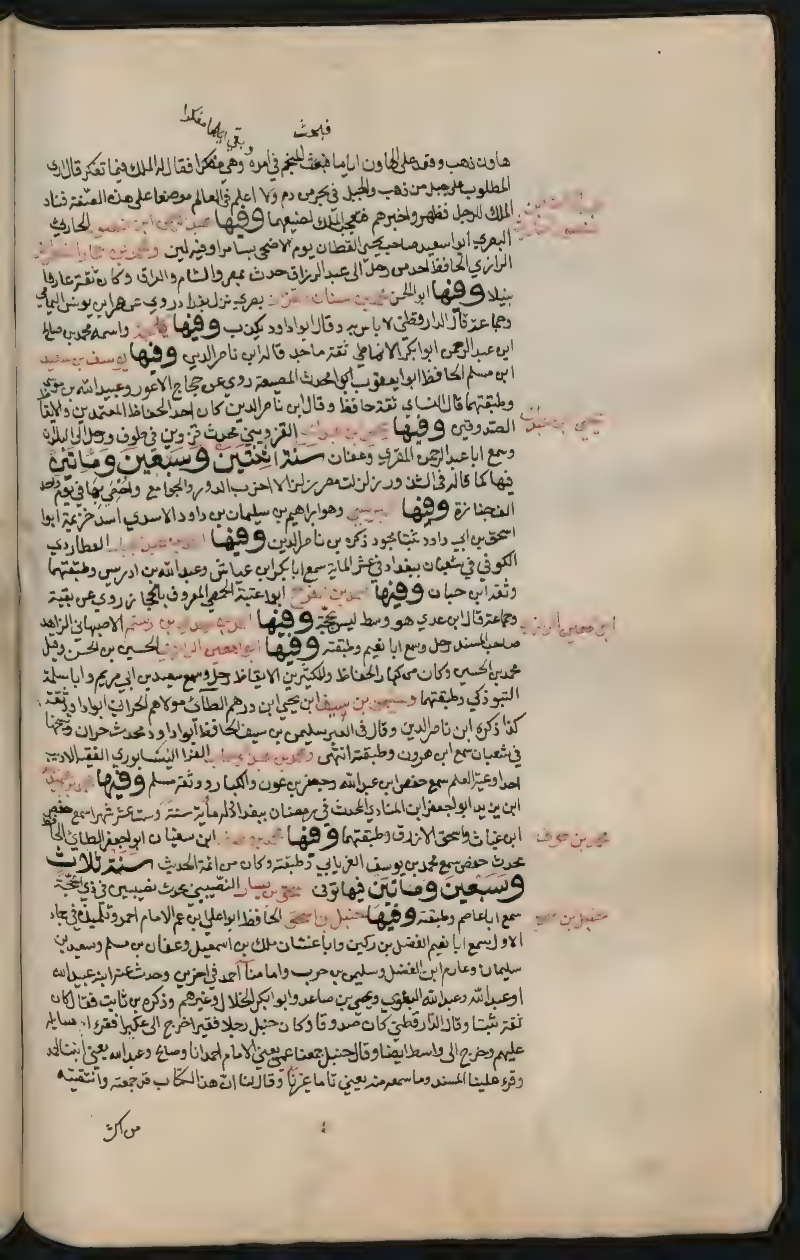 فبعث
وبقي اياما مفكرا
هاون ذهب وقعد على الهاون اياما فبعث المنجم في امره وهي مفكرا فقال له الملك فيما تفكر قال ارى
المطلوب على جبل من ذهب والجبل في بحر من دم ولا اعلم في العالم موضعا على هذه الصفة فناد
الملك الرجل فظهر واخبرهم فتعجب الملك لصنيعهما وفيها عبد الرحمن ابن منصور الحارثي
البصري ابو سعيد صاحب يحيى القطان يوم الاضحى بسامرا وفيه لين ومحمد بن حماد الطهراني
الرازي الحافظ احد من رحل الى عبد الرزاق حدث بمصر والشام والعراق وكان ثقة عارفا
نبيلا وفيها ابو الحسن محمد بن سنان القزاز بصري نزل بغداد روى عن عمر ابن يونس اليمامي
وجماعة قال الدارقطني لا باس به وقال ابو داود يكذب وفيها كيلجة واسمه محمد بن صالح
ابن عبد الرحمن ابو بكر الانماطي ثقة ماجد قاله ابن ناصر الدين وفيها يوسف بن سعيد
ابن مسلم الحافظ ابو يعقوب محدث المصيصة روى عن حجاج الاعور وعبيد الله بن موسى
وطبقتهما قال النسائي ثقة حافظ وقال ابن ناصر الدين كان احد الحفاظ المعتمدين والايقاظ
الصدوقين وفيها يحيى بن عبدك القزويني محدث قزوين في طوف ورحل الى البلدان
وسمع ابا عبد الرحمن المقري وعفان سنة اثنتين وسبعين ومائتين
فيها كما قاله في الشذور زلزلت مصر زلزالا اخرب الدور والجوامع واحصي بها في يوم واحد
الف جنازة وفيها البرلسي وهو ابراهيم بن سليمان بن داود الاسدي اسد خزيمة ابو
اسحق بن ابي داود ثبتا مجود ذكره بن ناصر الدين وفيها احمد بن عبد الجبار العطاردي
الكوفي في شعبان ببغداد في عشر الماية سمع ابا بكر ابن عياش وعبد الله بن ادريس وطبقتهما
وثقه ابن حبان وفيها احمد بن الفرج ابو عتبة الحمصي المعروف بالحجازي روى عن بقية
وجماعة قال ابن عدي هو وسط ليس بحجة وفيها احمد بن مهدي بن رستم الاصبهاني الزاهد
صاحب المسند رحل وسمع ابا نعيم وطبقته وفيها ابو معين الرازي الحسين بن الحسن وقيل
محمد بن الحسين وكان من كبار الحفاظ والمكثرين الايقاظ رحل وسمع سعيد بن ابي مريم وابا سلمة
التبوذكي وطبقتهما وسليمن بن سيف ابن يحيى ابن درهم الطائي مولاهم الحراني ابو داود ثقة
كذا ذكره ابن ناصر الدين وقال في العبر سليمن بن سيف الحافظ ابو داود محدث حران وشيخها
في شعبان سمع ابن هرون وطبقته انتهى ومحمد بن عبد الوهاب الفرا النيسابوري الفقيه الاديب
احد اوعية العلم سمع حفص ابن عبد الله وجعفر بن عون والكبار ووثقه مسلم وفيها محمد بن عبيد
ابن يزيد ابو جعفر ابن المنادي المحدث في رمضان ببغداد له ماية سنة وستة عشر شهرا سمع حفص
ابن غياث واسحق الازرق وطبقتهما وفيها محمد بن عوف ابن سفيان ابو جعفر الطائي الحافظ
محدث حمص سمع محمد بن يوسف الفريابي وطبقته وكان من ائمة الحديث سنة ثلاث
وسبعين ومائتين فيها توفي اسحق بن سيار النصيبي محدث نصيبين في ذي الحجة
سمع ابا عاصم وطبقته وفيها حنبل بن اسحق الحافظ ابو علي ابن عم الامام احمد وتلميذه في جماد
الاول سمع ابا نعيم الفضل بن دكين وابا غسان ملك بن اسمعيل وعفان بن مسلم وسعيد بن
سليمان وعارم ابن الفضل وسليمن بن حرب وامامنا احمد في اخرين وحدث عنه ابنه عبيد الله
او عبد الله وعبد الله البغوي ويحيى بن صاعد وابو بكر الخلال وغيرهم وذكره بن ثابت فقال كان
ثقة ثبتا وقال الدارقطني كان صدوقا وكان حنبل رجلا فقيرا خرج الى عكبرا فقراء مسايله
عليهم وخرج الى واسط ايضا وقال حنبل جمعنا عمي يعني الامام احمد انا وصالح وعبد الله يعني ابنا احمد
وقرء علينا المسند وما سمعه منه يعني تاما غيرنا وقال لنا ان هذا الكتاب قد جمعته وانتقيته
من اكثر
يحيى بن عبدك
ابو معين الرازي
محمد بن عوف
حنبل بن اسحق